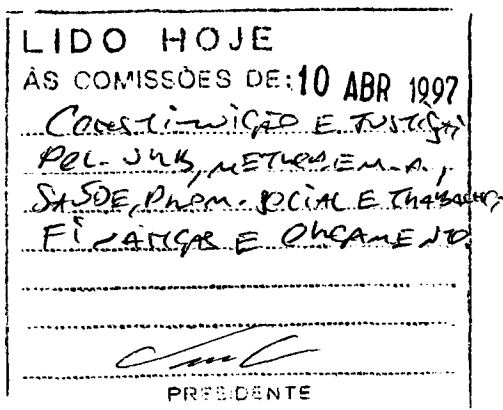 LIDO HOJE
ÀS COMISSÕES DE: 10 ABR 1997
CONSTITUIÇÃO E JUSTIÇA
POL. URB, METROP. E M.A.,
SAÚDE, PROM. SOCIAL E TRABALHO,
FINANÇAS E ORÇAMENTO.
PRESIDENTE